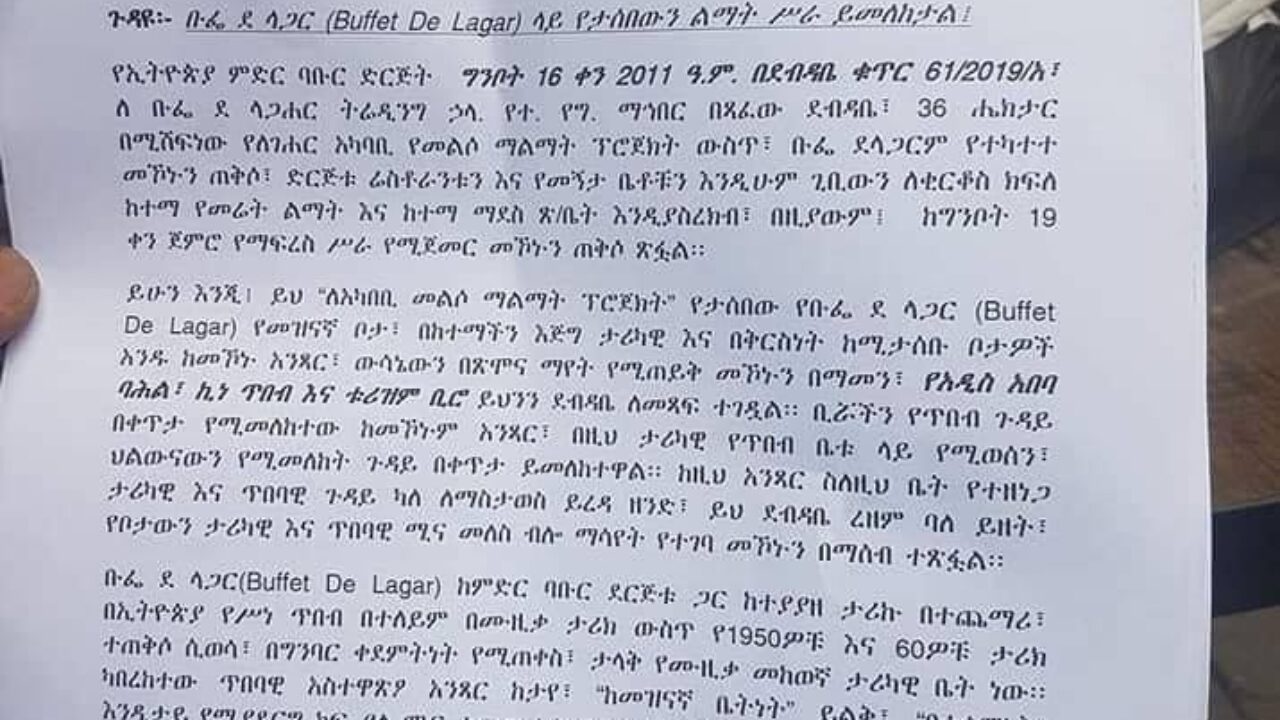 ጉዳዩ፡- ቡፌ ደ ላጋር (Buffet De Lagar) ላይ የታሰበውን ልማት ሥራ ይመለከታል፤
የኢትዮጵያ ምድር ባቡር ድርጅት ግንቦት 16 ቀን 2011 ዓ.ም. በደብዳቤ ቁጥር 61/2019/አ፣
ለ ቡፌ ደ ላጋሐር ትሬዲንግ ኃላ. የተ. የግ. ማኅበር በጻፈው ደብዳቤ፣ 36 ሔክታር
በሚሸፍነው የለገሐር አካባቢ የመልሶ ማልማት ፕሮጀክት ውስጥ፣ ቡፌ ደላጋርም የተካተተ
መኾኑን ጠቅሶ፣ ድርጅቱ ሬስቶራንቱን እና የመኝታ ቤቶቹን እንዲሁም ጊቢውን ለቂርቆስ ክፍለ
ከተማ የመሬት ልማት እና ከተማ ማደስ ጽ/ቤት እንዲያስረክብ፣ በዚያውም፤ ከግንቦት 19
ቀን ጀምሮ የማፍረስ ሥራ የሚጀመር መኾኑን ጠቅሶ ጽፏል፡፡
ይሁን እንጂ፤ ይህ “ለአካበቢ መልሶ ማልማት ፕሮጀክት” የታሰበው የቡፌ ደ ላጋር (Buffet
De Lagar) የመዝናኛ ቦታ፣ በከተማችን እጅግ ታሪካዊ እና በቅርስነት ከሚታሰቡ ቦታዎች
አንዱ ከመኾኑ አንጻር፣ ውሳኔውን በጽሞና ማየት የሚጠይቅ መኾኑን በማመን፣ የአዲስ አበባ
ባሕል፣ ኪነ ጥበብ እና ቱሪዝም ቢሮ ይህንን ደብዳቤ ለመጻፍ ተገዷል፡፡ ቢሯችን የጥበብ ጉዳይ
በቀጥታ የሚመለከተው ከመኾኑም አንጻር፣ በዚህ ታሪካዊ የጥበብ ቤቱ ላይ የሚወሰን፣
ህልውናውን የሚመለከት ጉዳይ በቀጥታ ይመለከተዋል፡፡ ከዚህ አንጻር ስለዚህ ቤት የተዘነጋ
ታሪካዊ እና ጥበባዊ ጉዳይ ካለ ለማስታወስ ይረዳ ዘንድ፣ ይህ ደብዳቤ ረዘም ባለ ይዘት፣
የቦታውን ታሪካዊ እና ጥበባዊ ሚና መለስ ብሎ ማሳየት የተገባ መኾኑን በማሰብ ተጽፏል፡፡
ቡፌ ደ ላጋር(Buffet De Lagar) ከምድር ባቡር ደርጅቱ ጋር ከተያያዘ ታሪኩ በተጨማሪ፣
በኢትዮጵያ የሥነ ጥበብ በተለይም በሙዚቃ ታሪክ ውስጥ የ1950ዎቹ እና 60ዎቹ ታሪክ
ተጠቅሶ ሲወሳ፣ በግንባር ቀደምትነት የሚጠቀስ፣ ታላቅ የሙዚቃ መከወኛ ታሪካዊ ቤት ነው፡፡
ካበረከተው ጥበባዊ አስተዋጽዖ አንጻር ከታየ፣ “ከመዝናኛ ቤትነት” ይልቅ፣
እንዲታይ የሚያደርግ